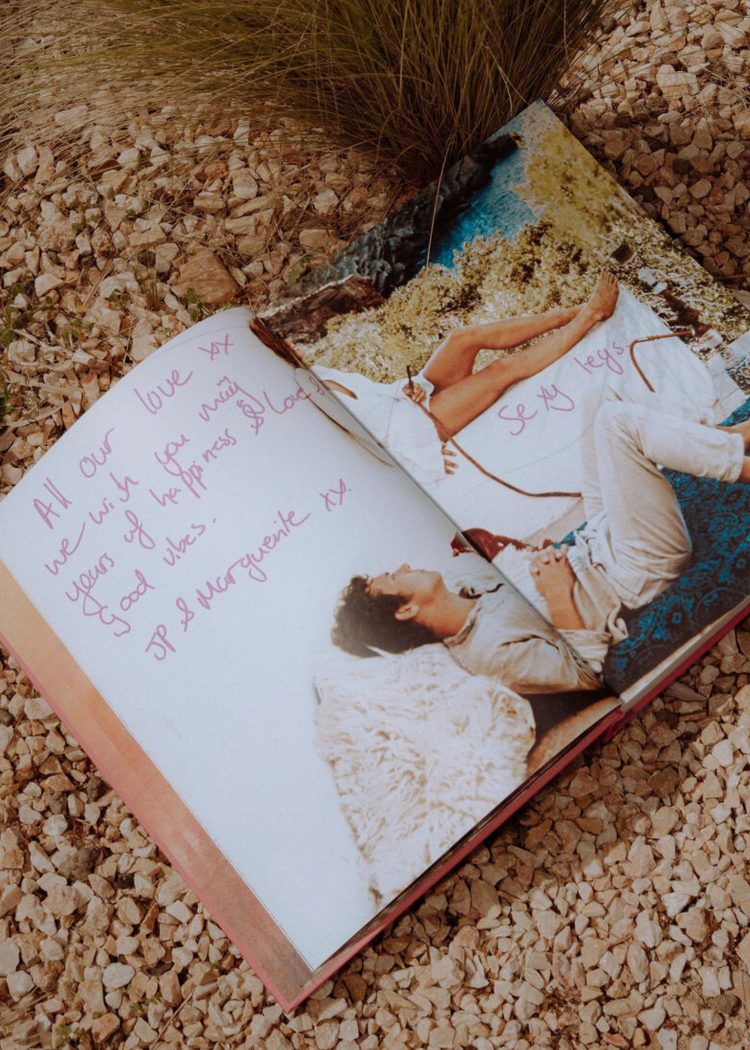 All our love xx
we wish you many
years of happiness & love &
good vibes.
JP & Marguerite xx.
Sexy legs